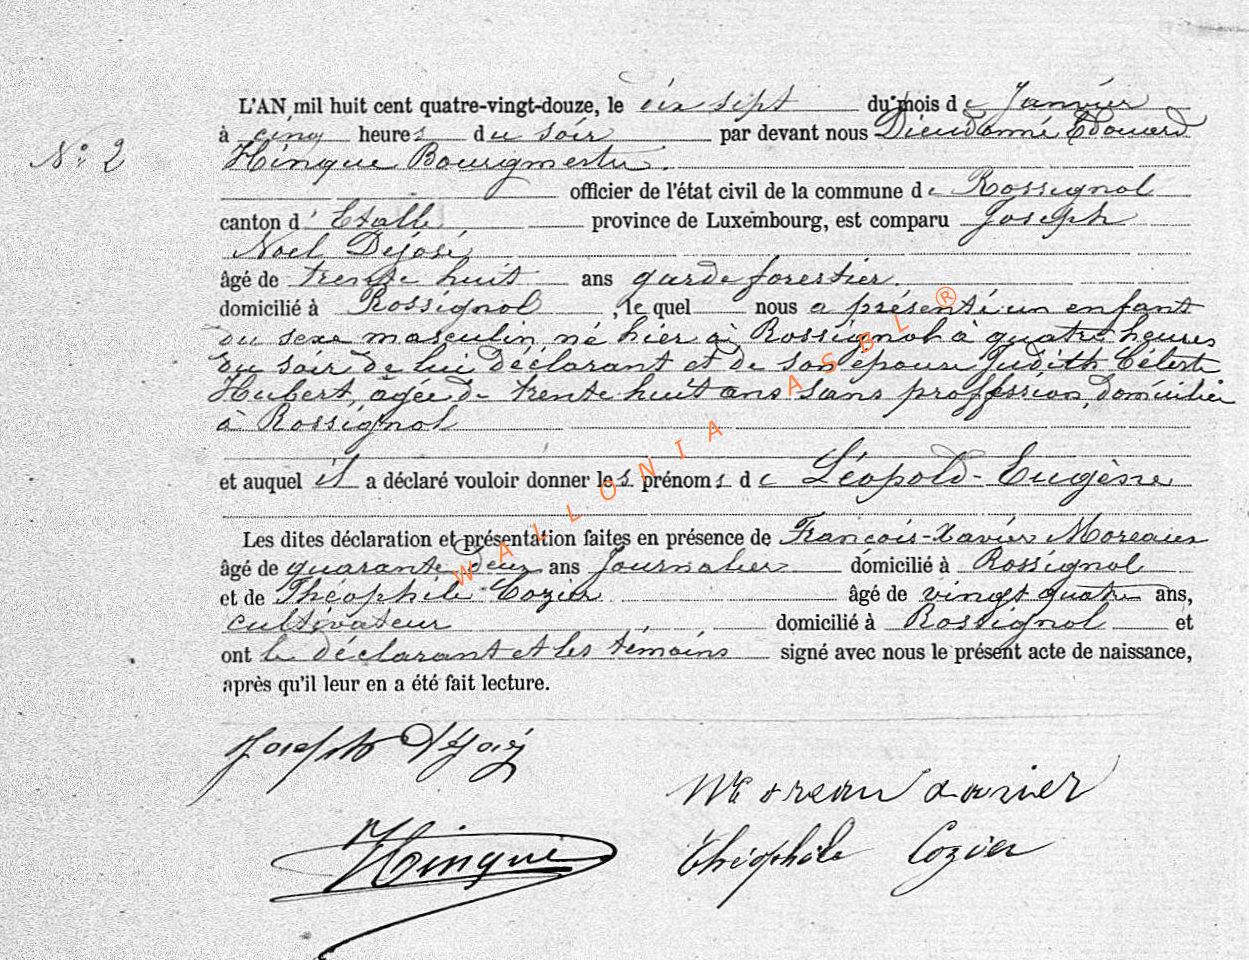 L'AN mil huit cent quatre-vingt-douze, le dix sept du mois de Janvier
à cinq heures du soir par devant nous Dieudonné Edouard
N° 2
Hinque Bourgmestre.
officier de l'état civil de la commune de Rossignol
canton d'Etalle province de Luxembourg, est comparu Joseph
Noel Déjosé
âgé de trente huit ans garde forestier.
domicilié à Rossignol, lequel nous a présenté un enfant
du sexe masculin, né hier à Rossignol à quatre heures
du soir de lui déclarant et de son épouse Judith Céleste
Hubert, agée de trente huit ans sans proffession, domiciliée
à Rossignol
et auquel il a déclaré vouloir donner les prénoms de Léopold-Eugène
Les dites déclaration et présentation faites en présence de François-Xavier Moreaux
âgé de quarante deux ans Journalier domicilié à Rossignol
et de Théophile Cozier âgé de vingt quatre ans,
cultivateur domicilié à Rossignol et
ont le déclarant et les témoins signé avec nous le présent acte de naissance,
après qu'il leur en a été fait lecture.
Joseph Déjosé
Moreau Xavier
Hinque
Théophile Cozier
WALLONIA ASBL ®